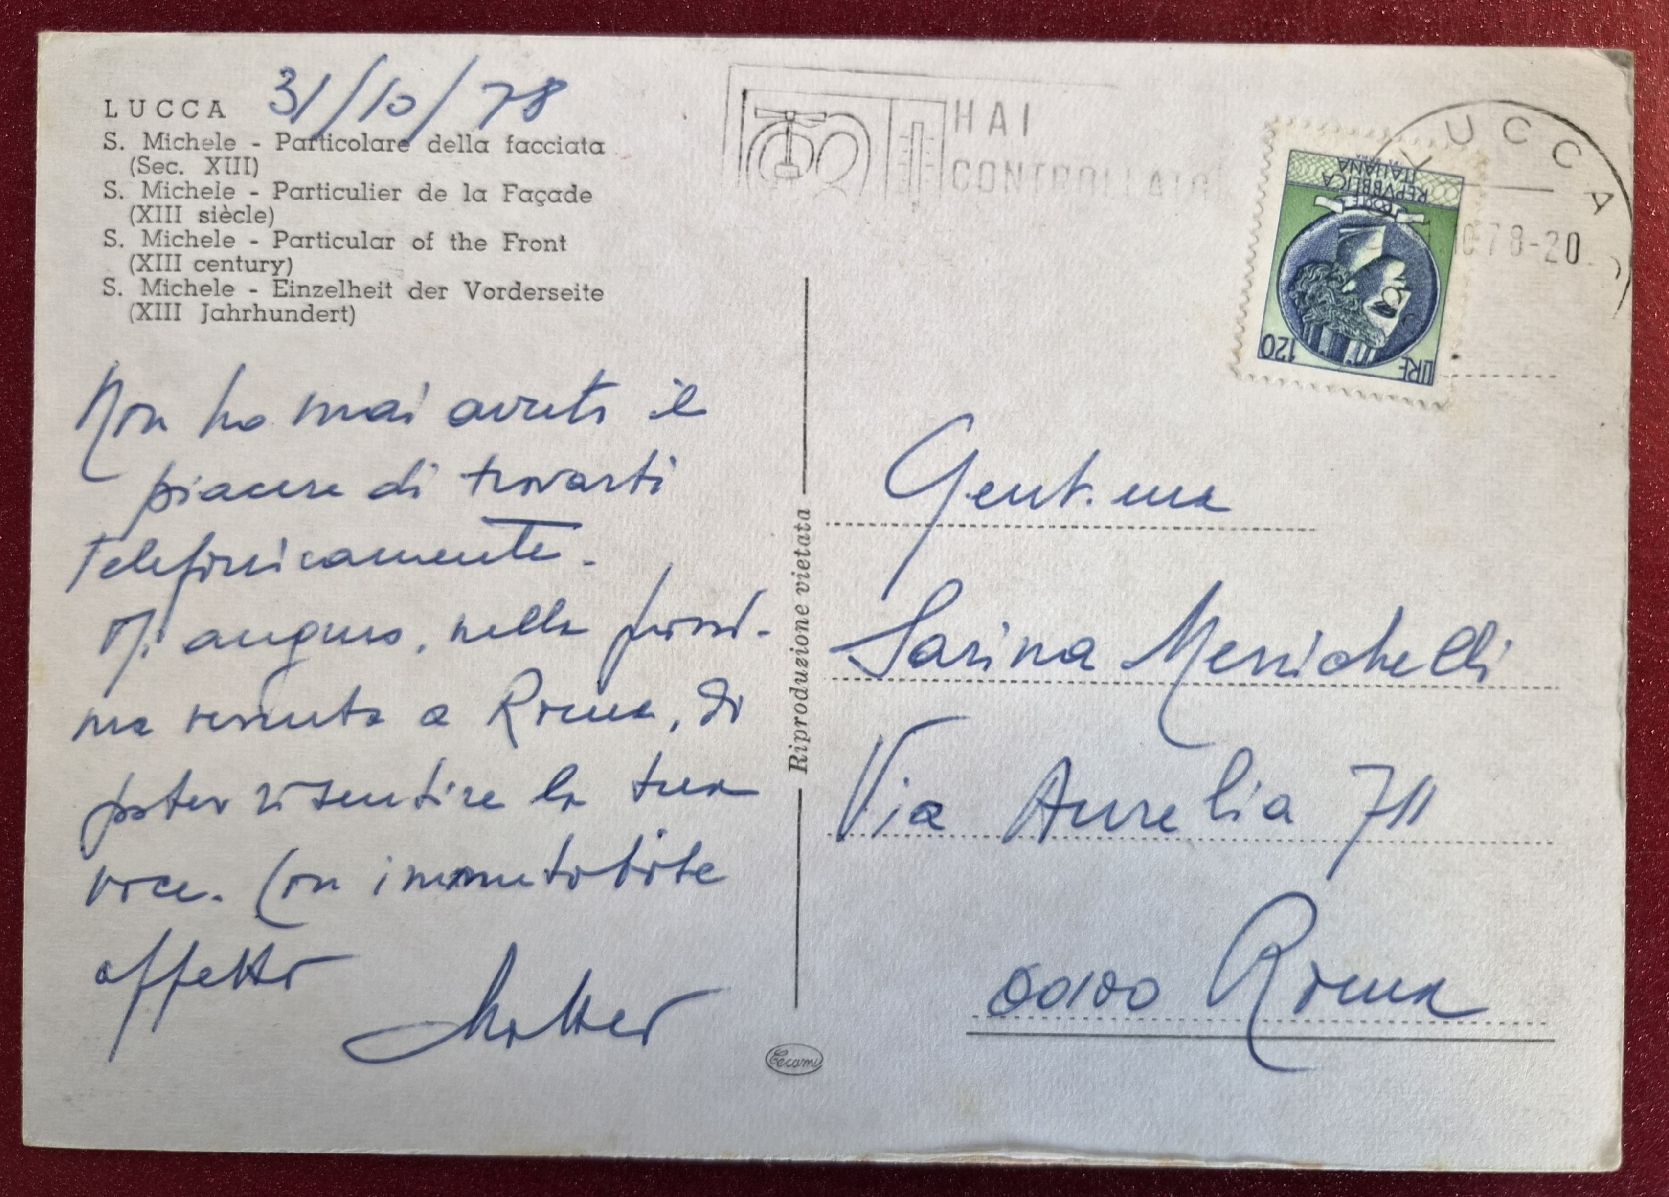 LUCCA 31/10/78
S. Michele - Particolare della facciata
(Sec. XIII)
S. Michele - Particulier de la Façade
(XIII siècle)
S. Michele - Particular of the Front
(XIII century)
S. Michele - Einzelheit der Vorderseite
(XIII Jahrhundert)
Non ho mai avuto il
piacere di trovarti
telefonicamente.
Mi auguro, nella prossi-
ma venuta a Roma, di
poter risentire la tua
voce. Con immutabile
affetto
Riproduzione vietata
HAI
CONTROLLATO
LUCCA
78-20
REPVBBLICA
ITALIANA
LIRE 120
Gent.ma
Sarina Menichelli
Via Aurelia 711
00100 Roma